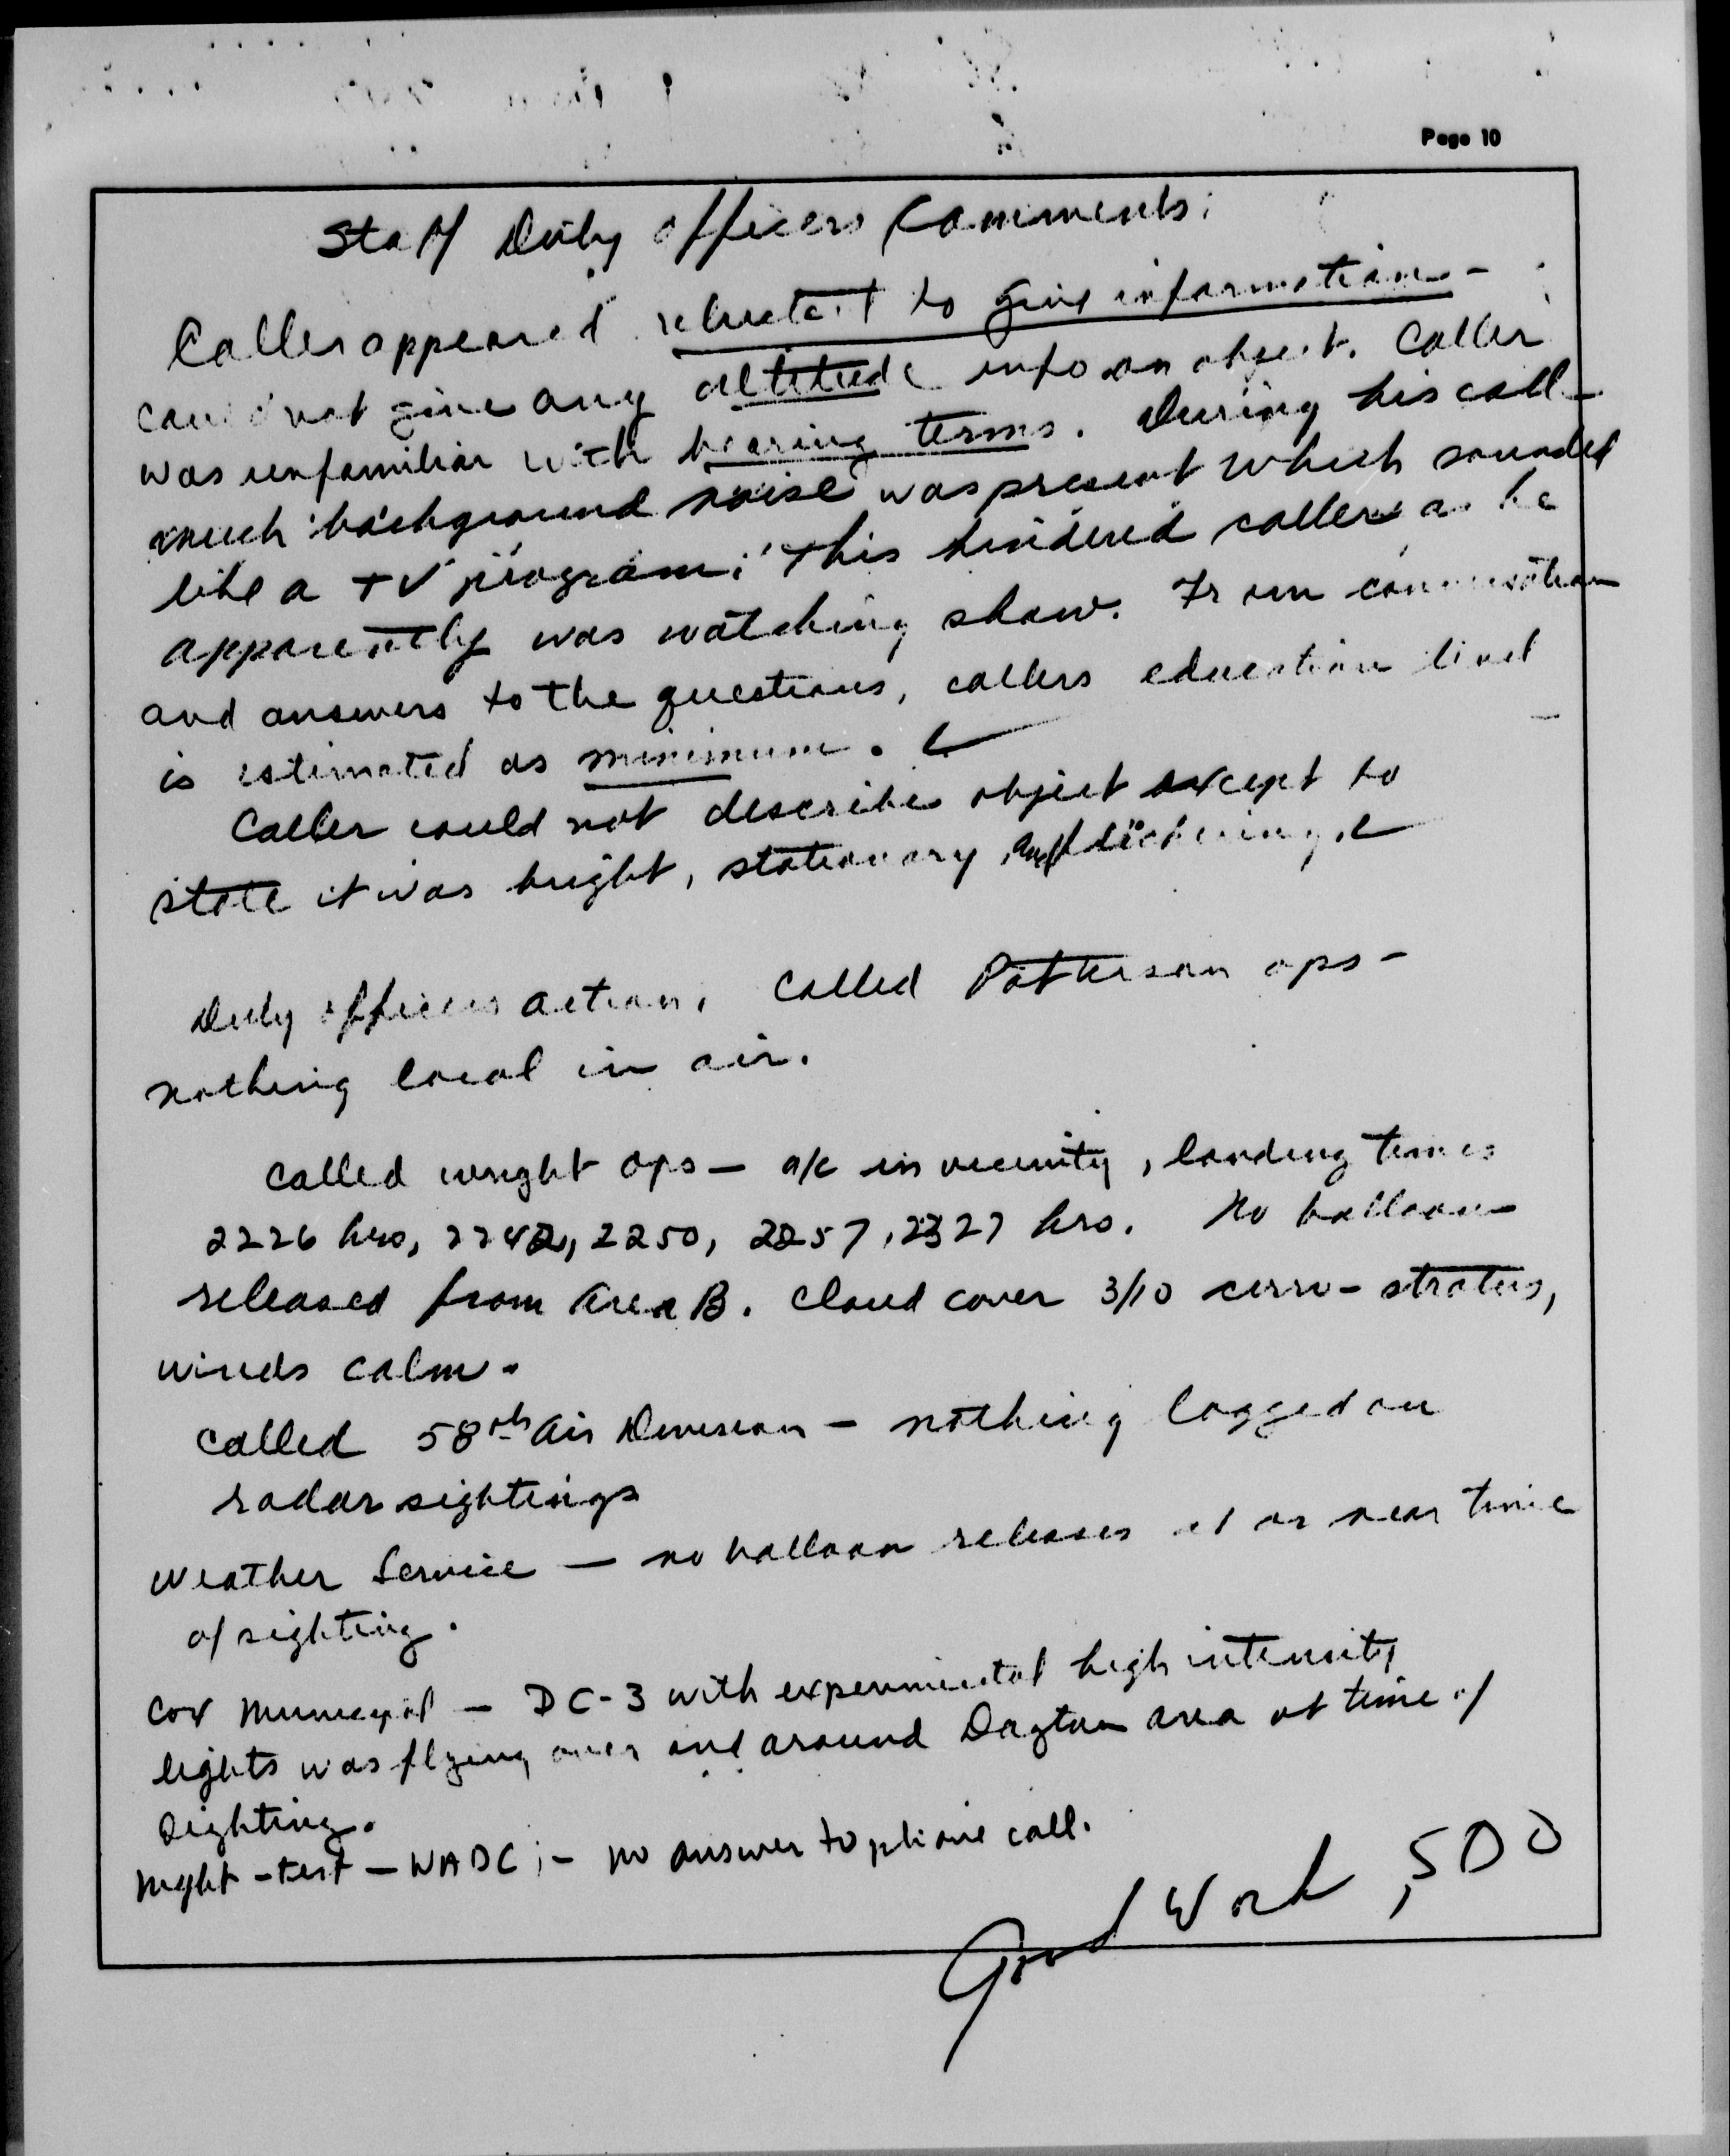 Page 10
Staff Duty Officers Comments:
Caller appeared reluctant to give information -
could not give any altitude info on object. Caller
was unfamiliar with bearing terms. During his call -
much background noise was present which sounded
like a TV program. This hindered caller as he
apparently was watching show. From conversation
and answers to the questions, callers education level
is estimated as minimum.
Caller could not describe object except to
state it was bright, stationary and flickering.
Duty officers action. Called Patterson ops -
nothing local in air.
Called Wright Ops - a/c in vicinity, landing times
2226 hrs, 2242, 2250, 2257, 2327 hrs. No balloons
released from Area B. Cloud cover 3/10 cirro-stratus,
winds calm.
Called 58th Air Division - nothing logged on
radar sightings
Weather Service - no balloon releases at or near time
of sighting.
Cox Municipal - DC-3 with experimental high intensity
lights was flying over and around Dayton area at time of
sighting.
Night - test - WADC ; - no answer to phone call.
Good Work, SDO